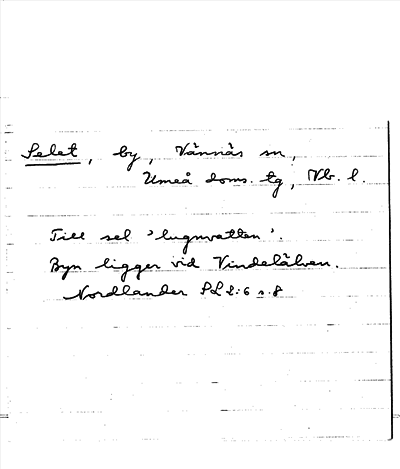 Selet, by, Vännäs sn,
Umeå doms. tg, Vb. l.
Till sel 'lugnvatten'.
Byn ligger vid Vindelälven.
Nordlander SL 2:6 s. 8